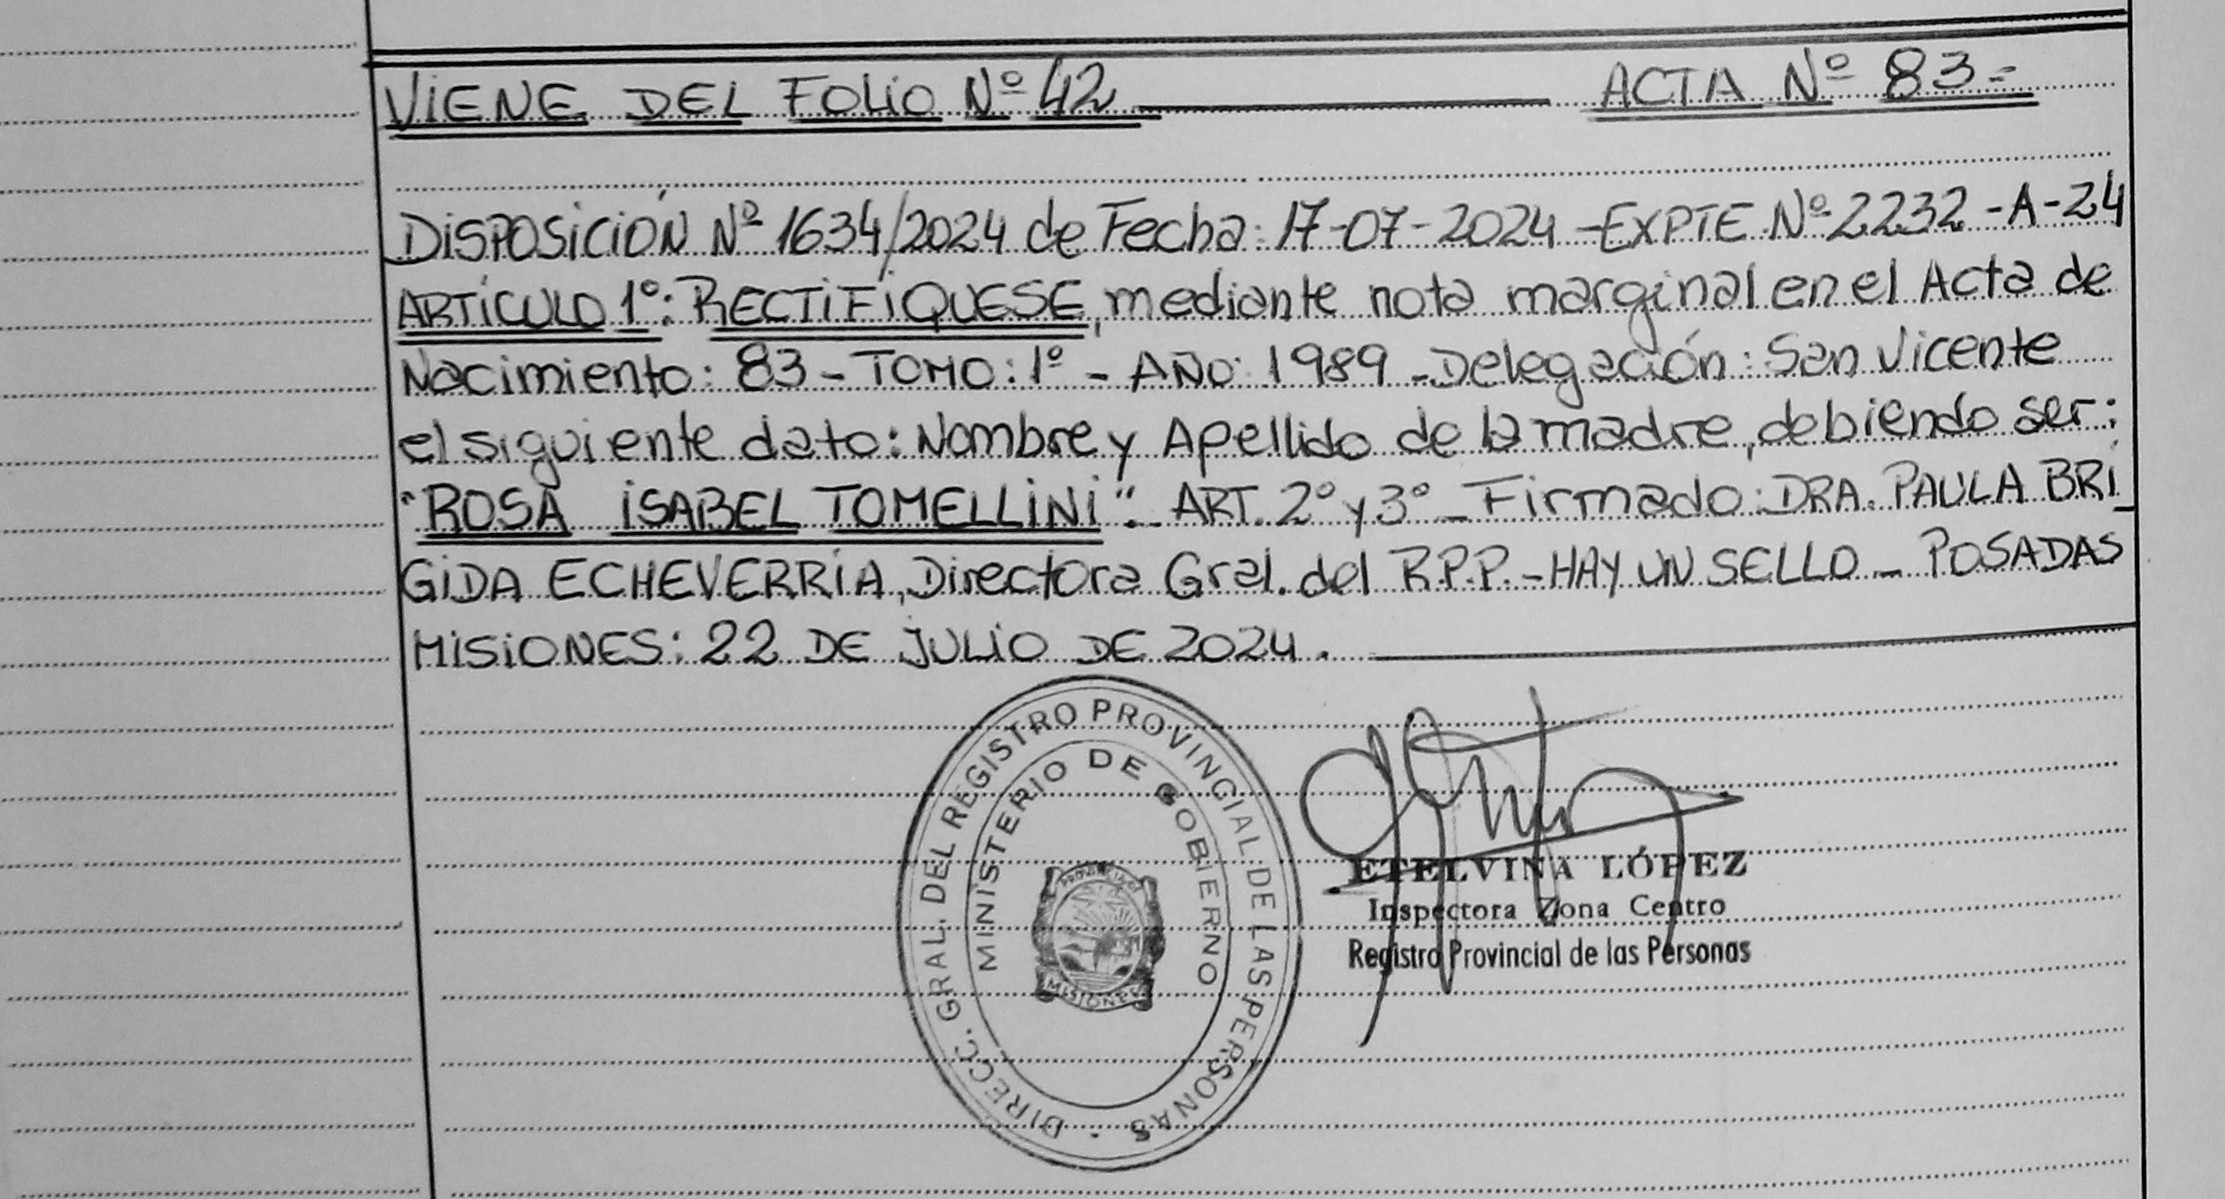 VIENE DEL FOLIO Nº 42 ACTA Nº 83=
DISPOSICIÓN Nº 1634/2024 de Fecha: 17-07-2024 - EXPTE Nº 2232-A-24
ARTÍCULO 1º: RECTIFIQUESE, mediante nota marginal en el Acta de
Nacimiento: 83 - TOMO: 1º - AÑO: 1989 - Delegación: San Vicente
el siguiente dato: Nombre y Apellido de la madre, debiendo ser:
"ROSA ISABEL TOMELLINI". ART. 2º y 3º - Firmado: DRA. PAULA BRI_
GIDA ECHEVERRÍA, Directora Gral. del R.P.P. - HAY UN SELLO - POSADAS
MISIONES: 22 DE JULIO DE 2024.
DIRECC. GRAL. DEL REGISTRO PROVINCIAL DE LAS PERSONAS -
MINISTERIO DE GOBIERNO
PROVINCIA DE
MISIONES
ETELVINA LÓPEZ
Inspectora Zona Centro
Registro Provincial de las Personas